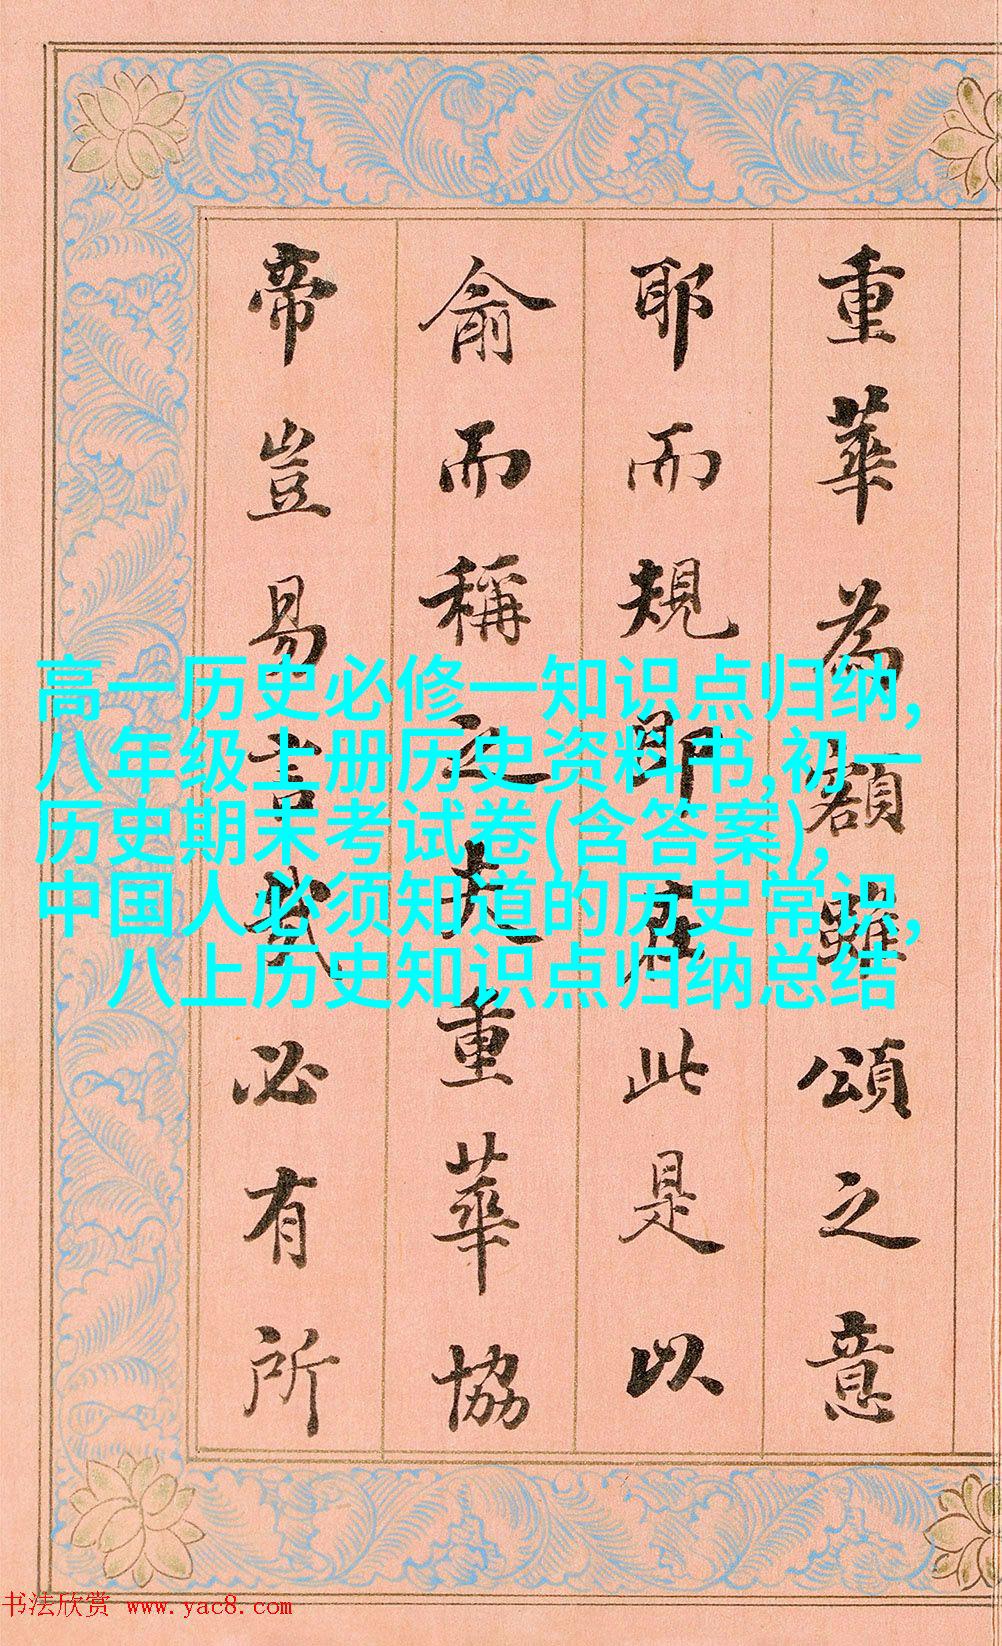 重華為額雖頌之意
耶而規即在此是以
俞而稱之堯重華協
帝豈易言哉必有所
高一历史必修一知识点归纳,
八年级上册历史资料书,初一
历史期末考试卷(含答案),
中国人必须知道的历史常识,
八上历史知识点归纳总结
书法欣赏 www.yac8.com